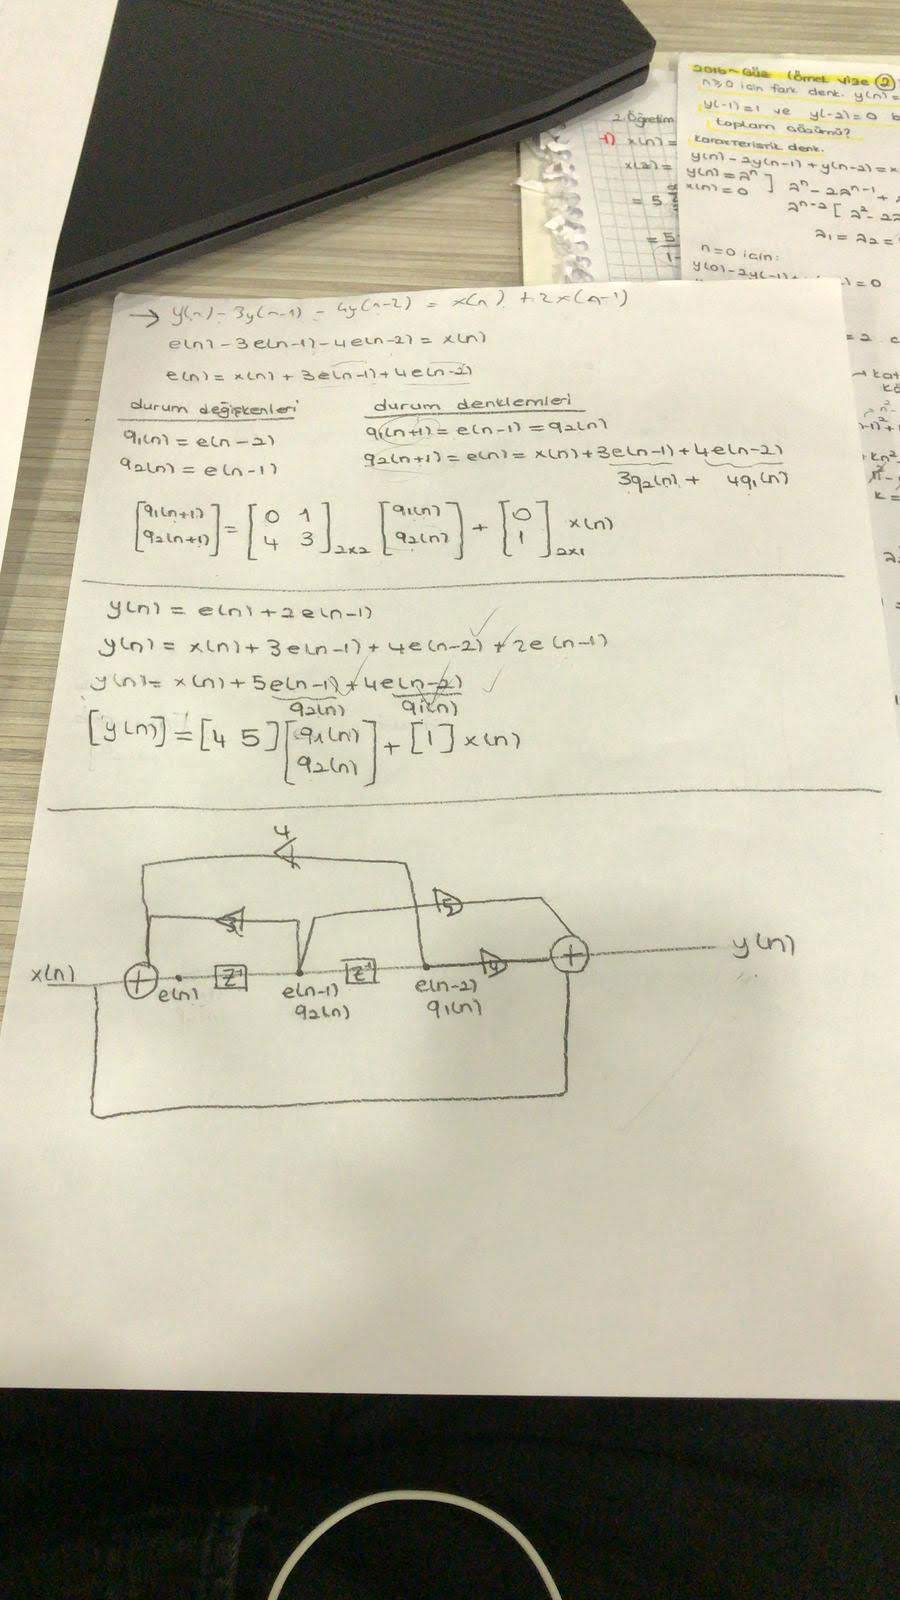 2016-Güz (örnek vize 2)
n≥0 için fark denk. y(n)=
y(-1)=1 ve y(-2)=0
toplam çözümü?
karakteristik denk.
y(n)-2y(n-1)+y(n-2)=x
y(n)=a^n ] a^n-2a^n-1+
x(n)=0
a^n-2 [a^2-2a
a1=a2=
n=0 için:
2. Öğretim
1) x(n)=
x(z)=
=5
=5
→ y(n)-3y(n-1)-4y(n-2) = x(n)+2x(n-1)
e(n)-3e(n-1)-4e(n-2)=x(n)
e(n)=x(n)+3e(n-1)+4e(n-2)
durum değişkenleri durum denklemleri
q1(n)=e(n-2) q1(n+1)=e(n-1)=q2(n)
q2(n)=e(n-1) q2(n+1)=e(n)=x(n)+3e(n-1)+4e(n-2)
3q2(n)+ 4q1(n)
[q1(n+1) q2(n+1)] = [0 1 4 3]2x2 [q1(n) q2(n)] + [0 1]2x1 x(n)
y(n)=e(n)+2e(n-1)
y(n)=x(n)+3e(n-1)+4e(n-2)+2e(n-1)
y(n)=x(n)+5e(n-1)+4e(n-2)
q2(n) q1(n)
[y(n)]=[4 5][q1(n) q2(n)]+[1]x(n)
4
3 5
x(n) + e(n) z^-1 z^-1 4 + y(n)
e(n-1) e(n-2)
q2(n) q1(n)